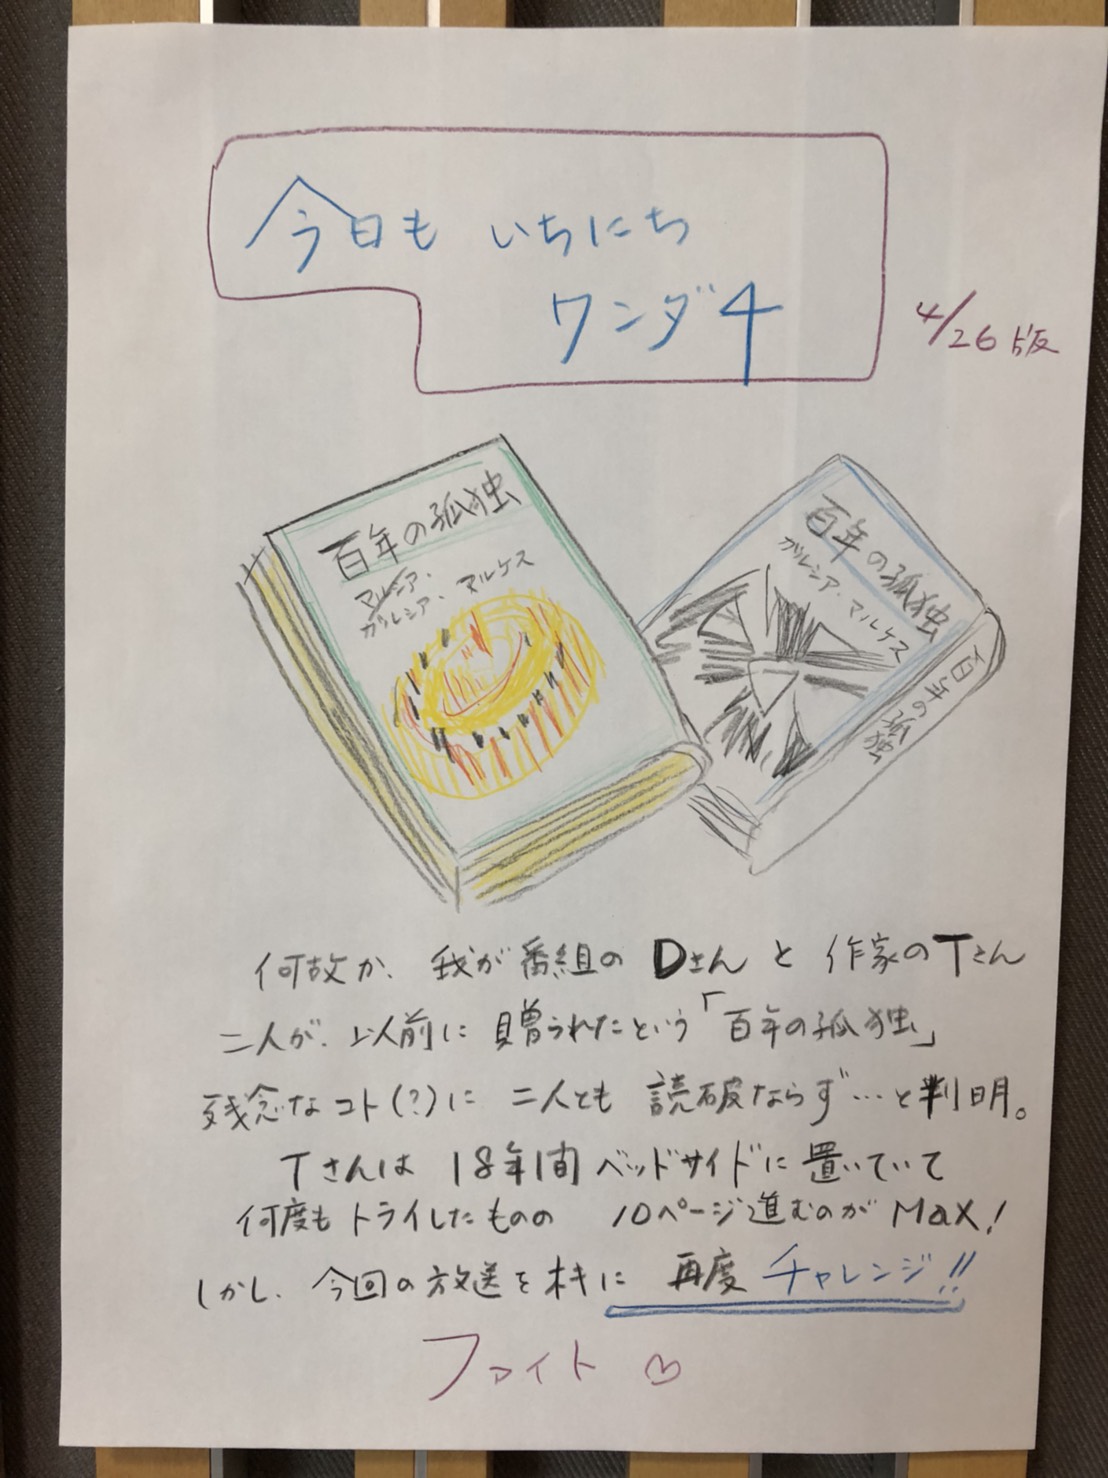 今日も いちにち
ワンダ4
4/26版
百年の孤独
マルシア・
ガルシア・マルケス
百年の孤独
ガルシア・マルケス
百年の孤独
何故か、我が番組の Dさんと 作家のTさん
二人が、以前に 贈られたという「百年の孤独」
残念なコト(?)に 二人とも 読破ならず…と判明。
Tさんは 18年間 ベッドサイドに 置いていて
何度もトライしたものの 10ページ進むのが MaX!
しかし、今回の放送を木キに 再度 チャレンジ!!
ファイト ♡